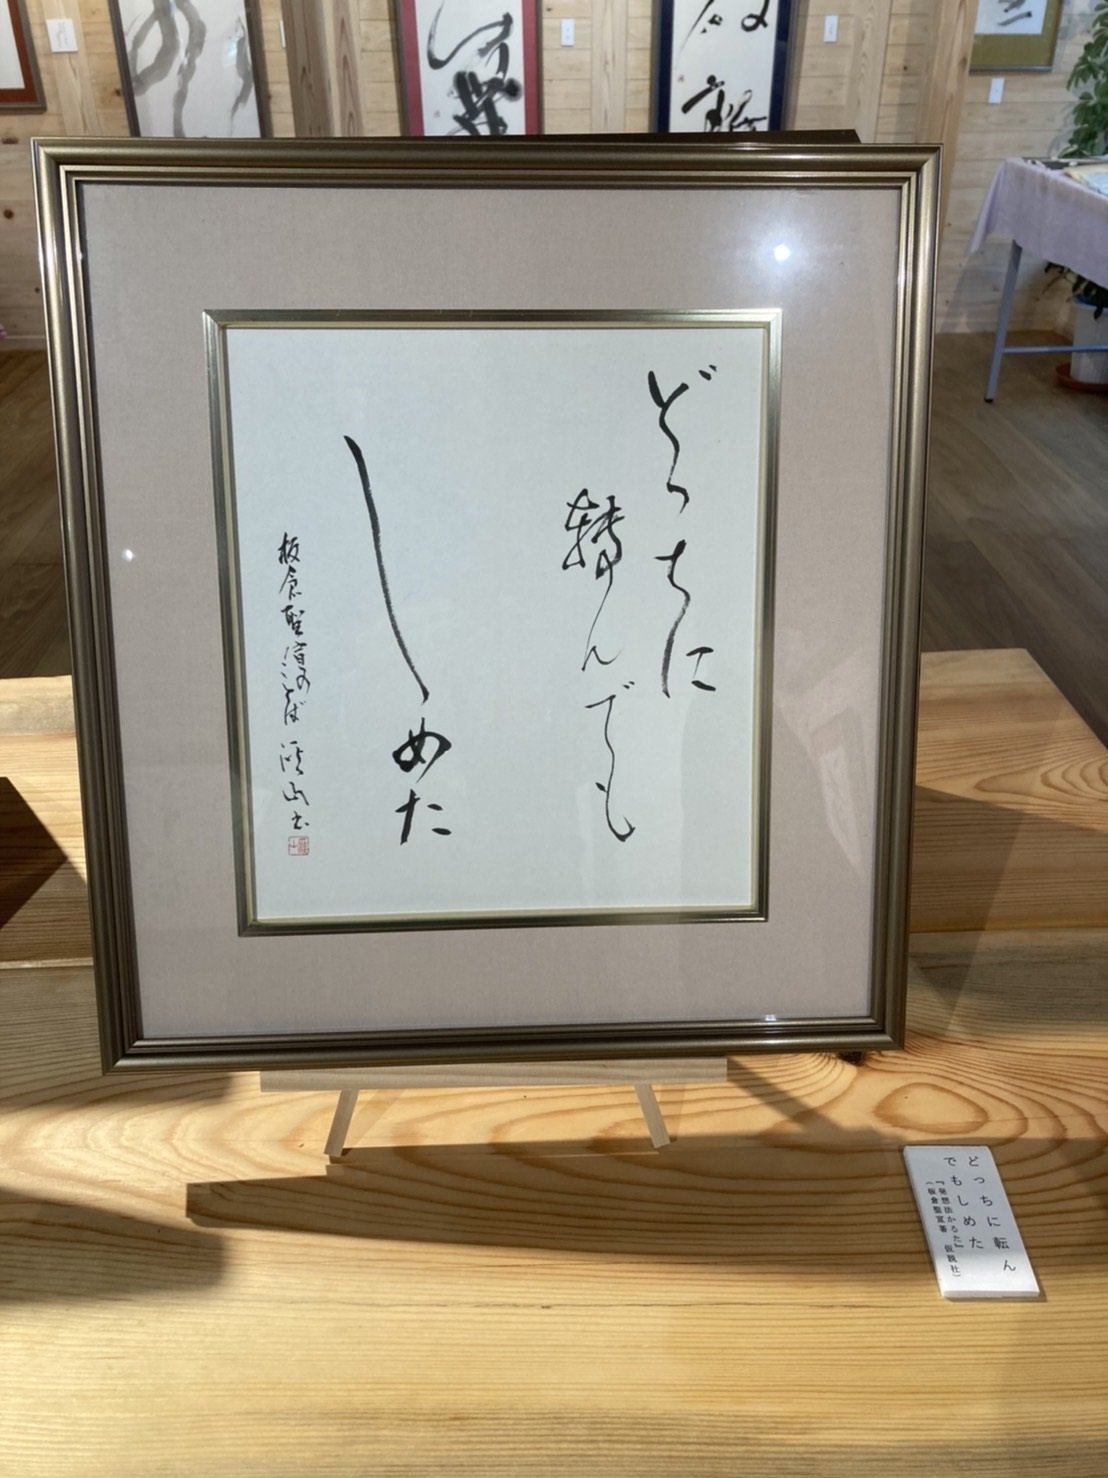 どっちに
轉んでも
しめた
板倉聖宣のことば 渓山書
どっちに転ん
でもしめた
『発想法かるた』
(板倉聖宣著 仮説社)